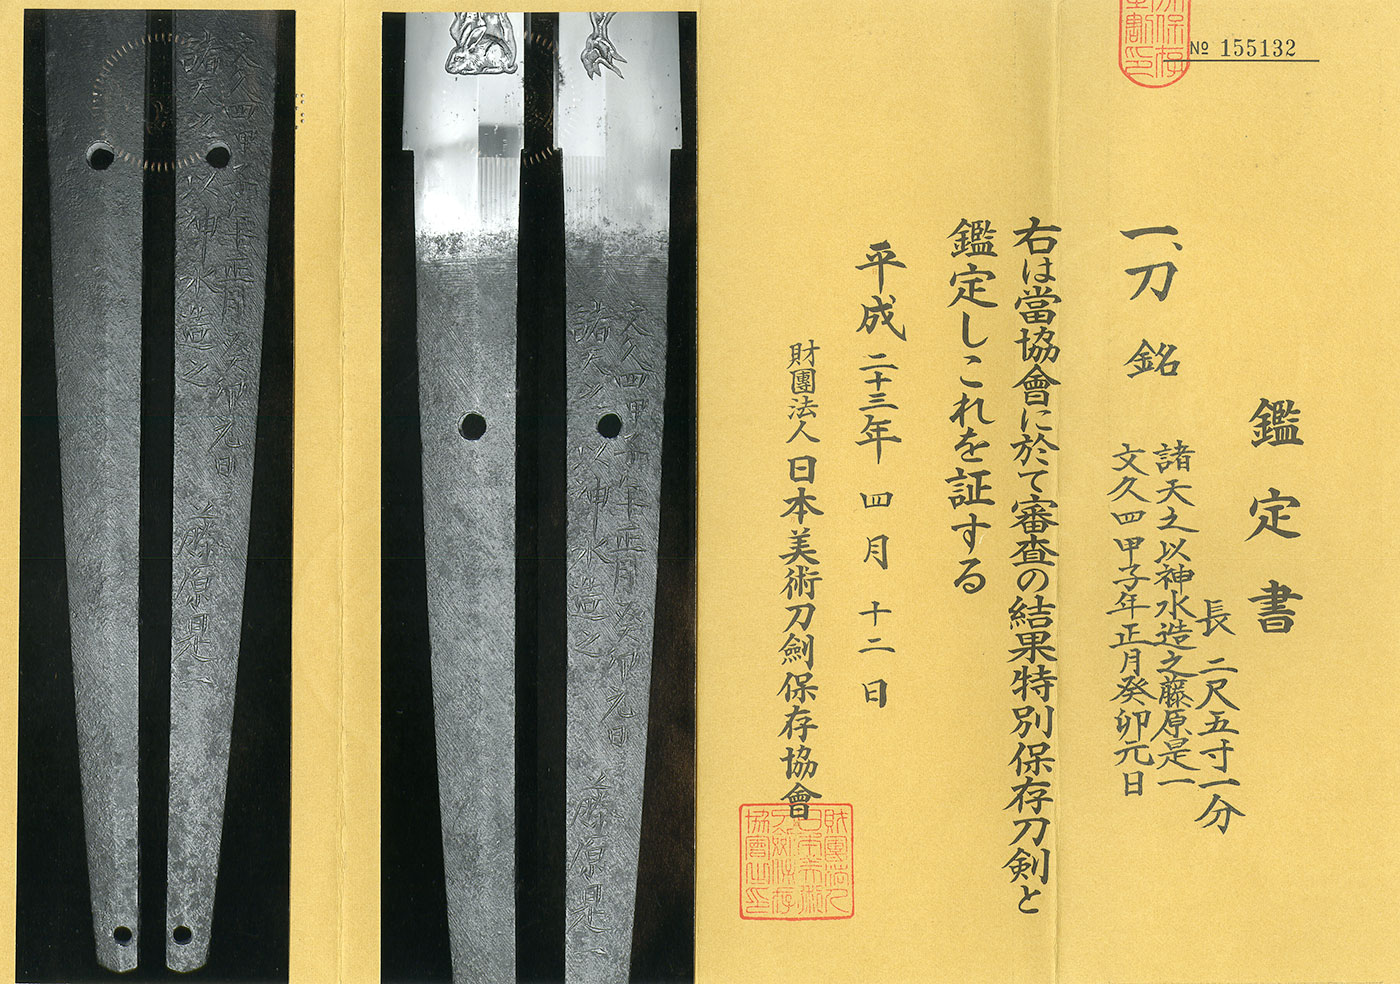 № 155132
鑑定書
一、刀 銘
長 二尺五寸一分
諸天之以神水造之藤原是一
文久四甲子年正月癸卯元日
右は當協會に於て審査の結果特別保存刀剣と
鑑定しこれを証する
平成二十三年四月十二日
財團法人日本美術刀劍保存協會
文久四甲子年正月癸卯元日
諸天之以神水造之 藤原是一
文久四甲子年正月癸卯元日
諸天之以神水造之 藤原是一